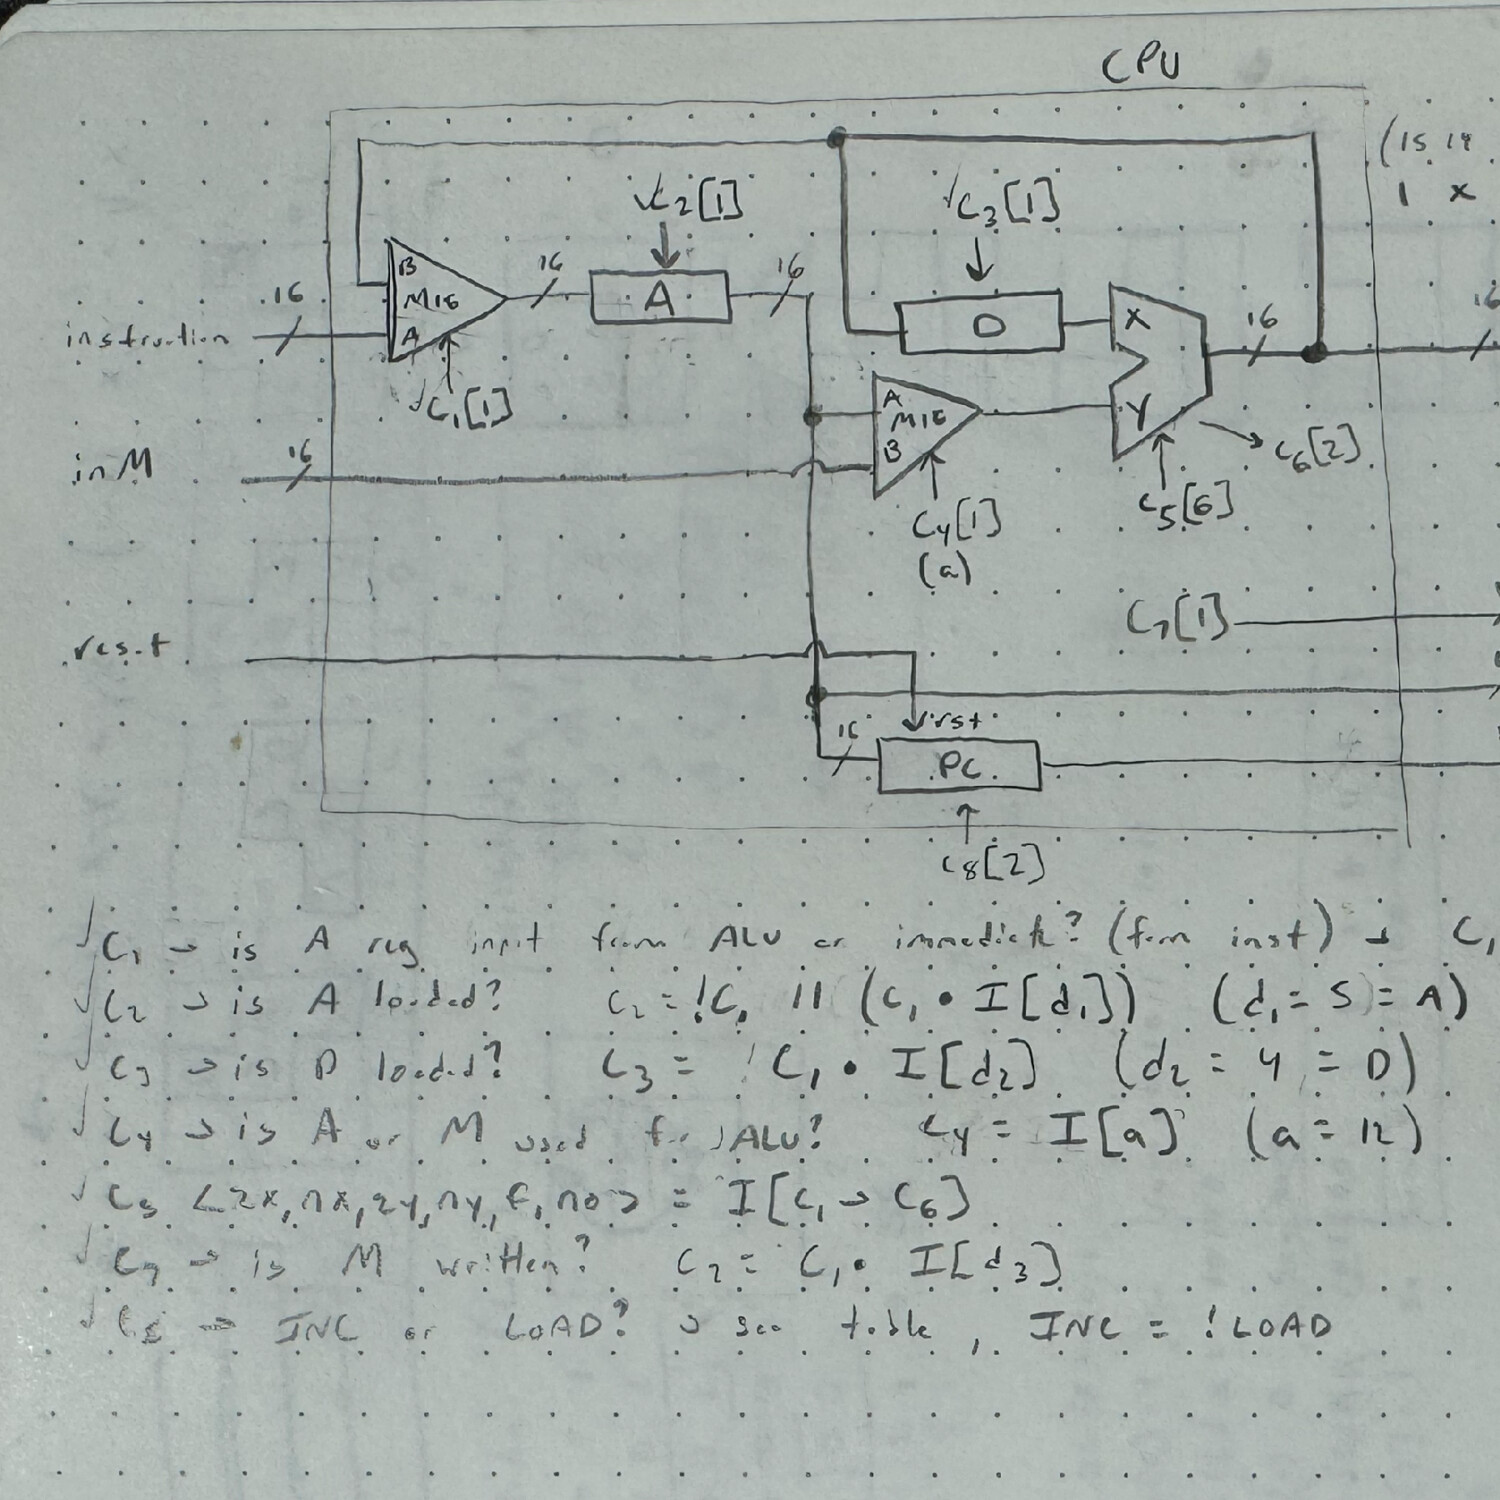 CPU
(15 14
1 x
√C2[1]
√C3[1]
16
16
16
B
M16
A
A
D
X
Y
16
16
instruction
√C1[1]
A
M16
B
inM
16
C6[2]
C5[6]
C4[1]
(a)
C7[1]
reset
rst
16
PC
C8[2]
√ C1 → is A reg input from ALU or immediate? (from inst) → C1
√ C2 → is A loaded? C2 = !C1 || (C1 • I[d1]) (d1 = 5 = A)
√ C3 → is D loaded? C3 = C1 • I[d2] (d2 = 4 = D)
√ C4 → is A or M used for ALU? C4 = I[a] (a = 12)
√ C5 <zx, nx, zy, ny, f, no> = I[C1 → C6]
√ C7 → is M written? C7 = C1 • I[d3]
√ C8 → INC or LOAD? → see table, INC = !LOAD